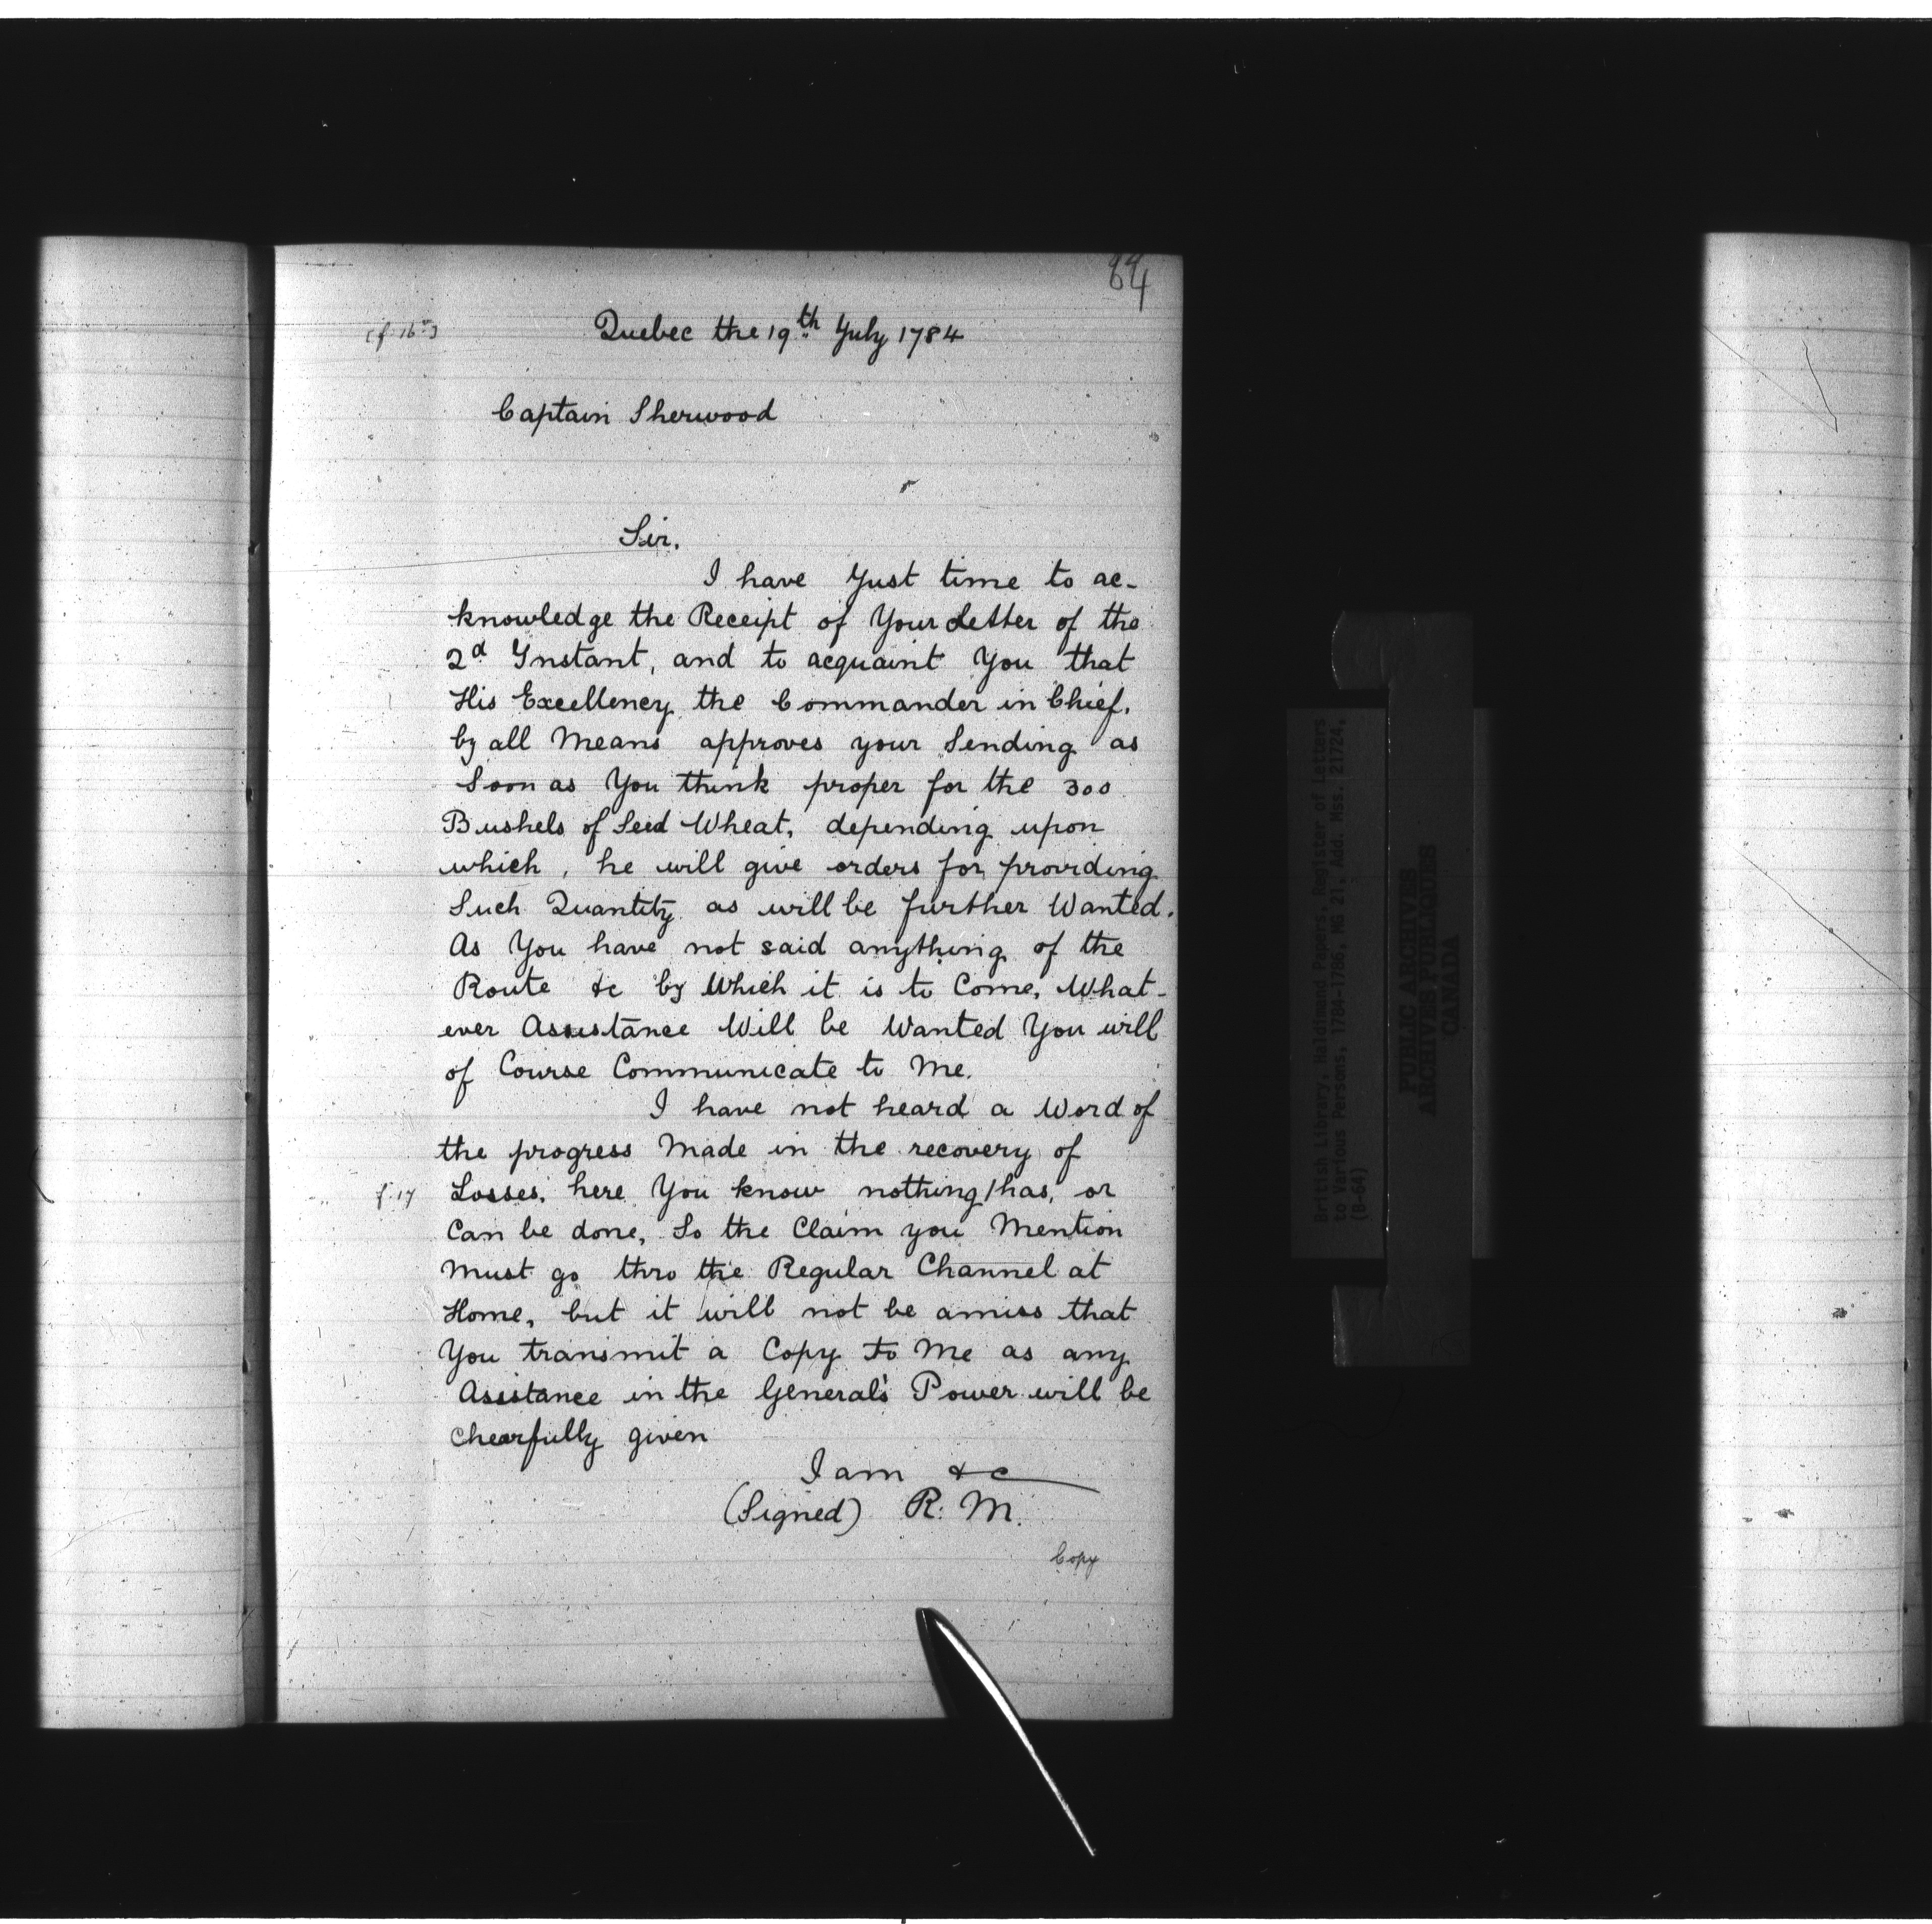 84
[f. 16v]
Quebec the 19th July 1784
Captain Sherwood
Sir.
I have Just time to ac-
knowledge the Receipt of Your Letter of the
2d Instant, and to acquaint You that
His Excellency the Commander in Chief.
by all Means approves your Sending as
Soon as You think proper for the 300
Bushels of Seed Wheat, depending upon
which, he will give orders for providing
Such Quantity as will be further Wanted.
As You have not said anything of the
Route &c by Which it is to Come, What-
ever Assistance Will be Wanted You will
of Course Communicate to Me.
I have not heard a Word of
the progress Made in the recovery of
f. 17 Losses, here You know nothing/has, or
Can be done, So the Claim you Mention
Must go thro the Regular Channel at
Home, but it will not be amiss that
You transmit a Copy to Me as any
Asistance in the General's Power will be
Chearfully given
I am &c
(Signed) R: M.
Copy
British Library, Haldimand Papers. Register of Letters
to Various Persons, 1784-1786, MG 21, Add. Mss. 21724,
(B-64)
PUBLIC ARCHIVES
ARCHIVES PUBLIQUES
CANADA